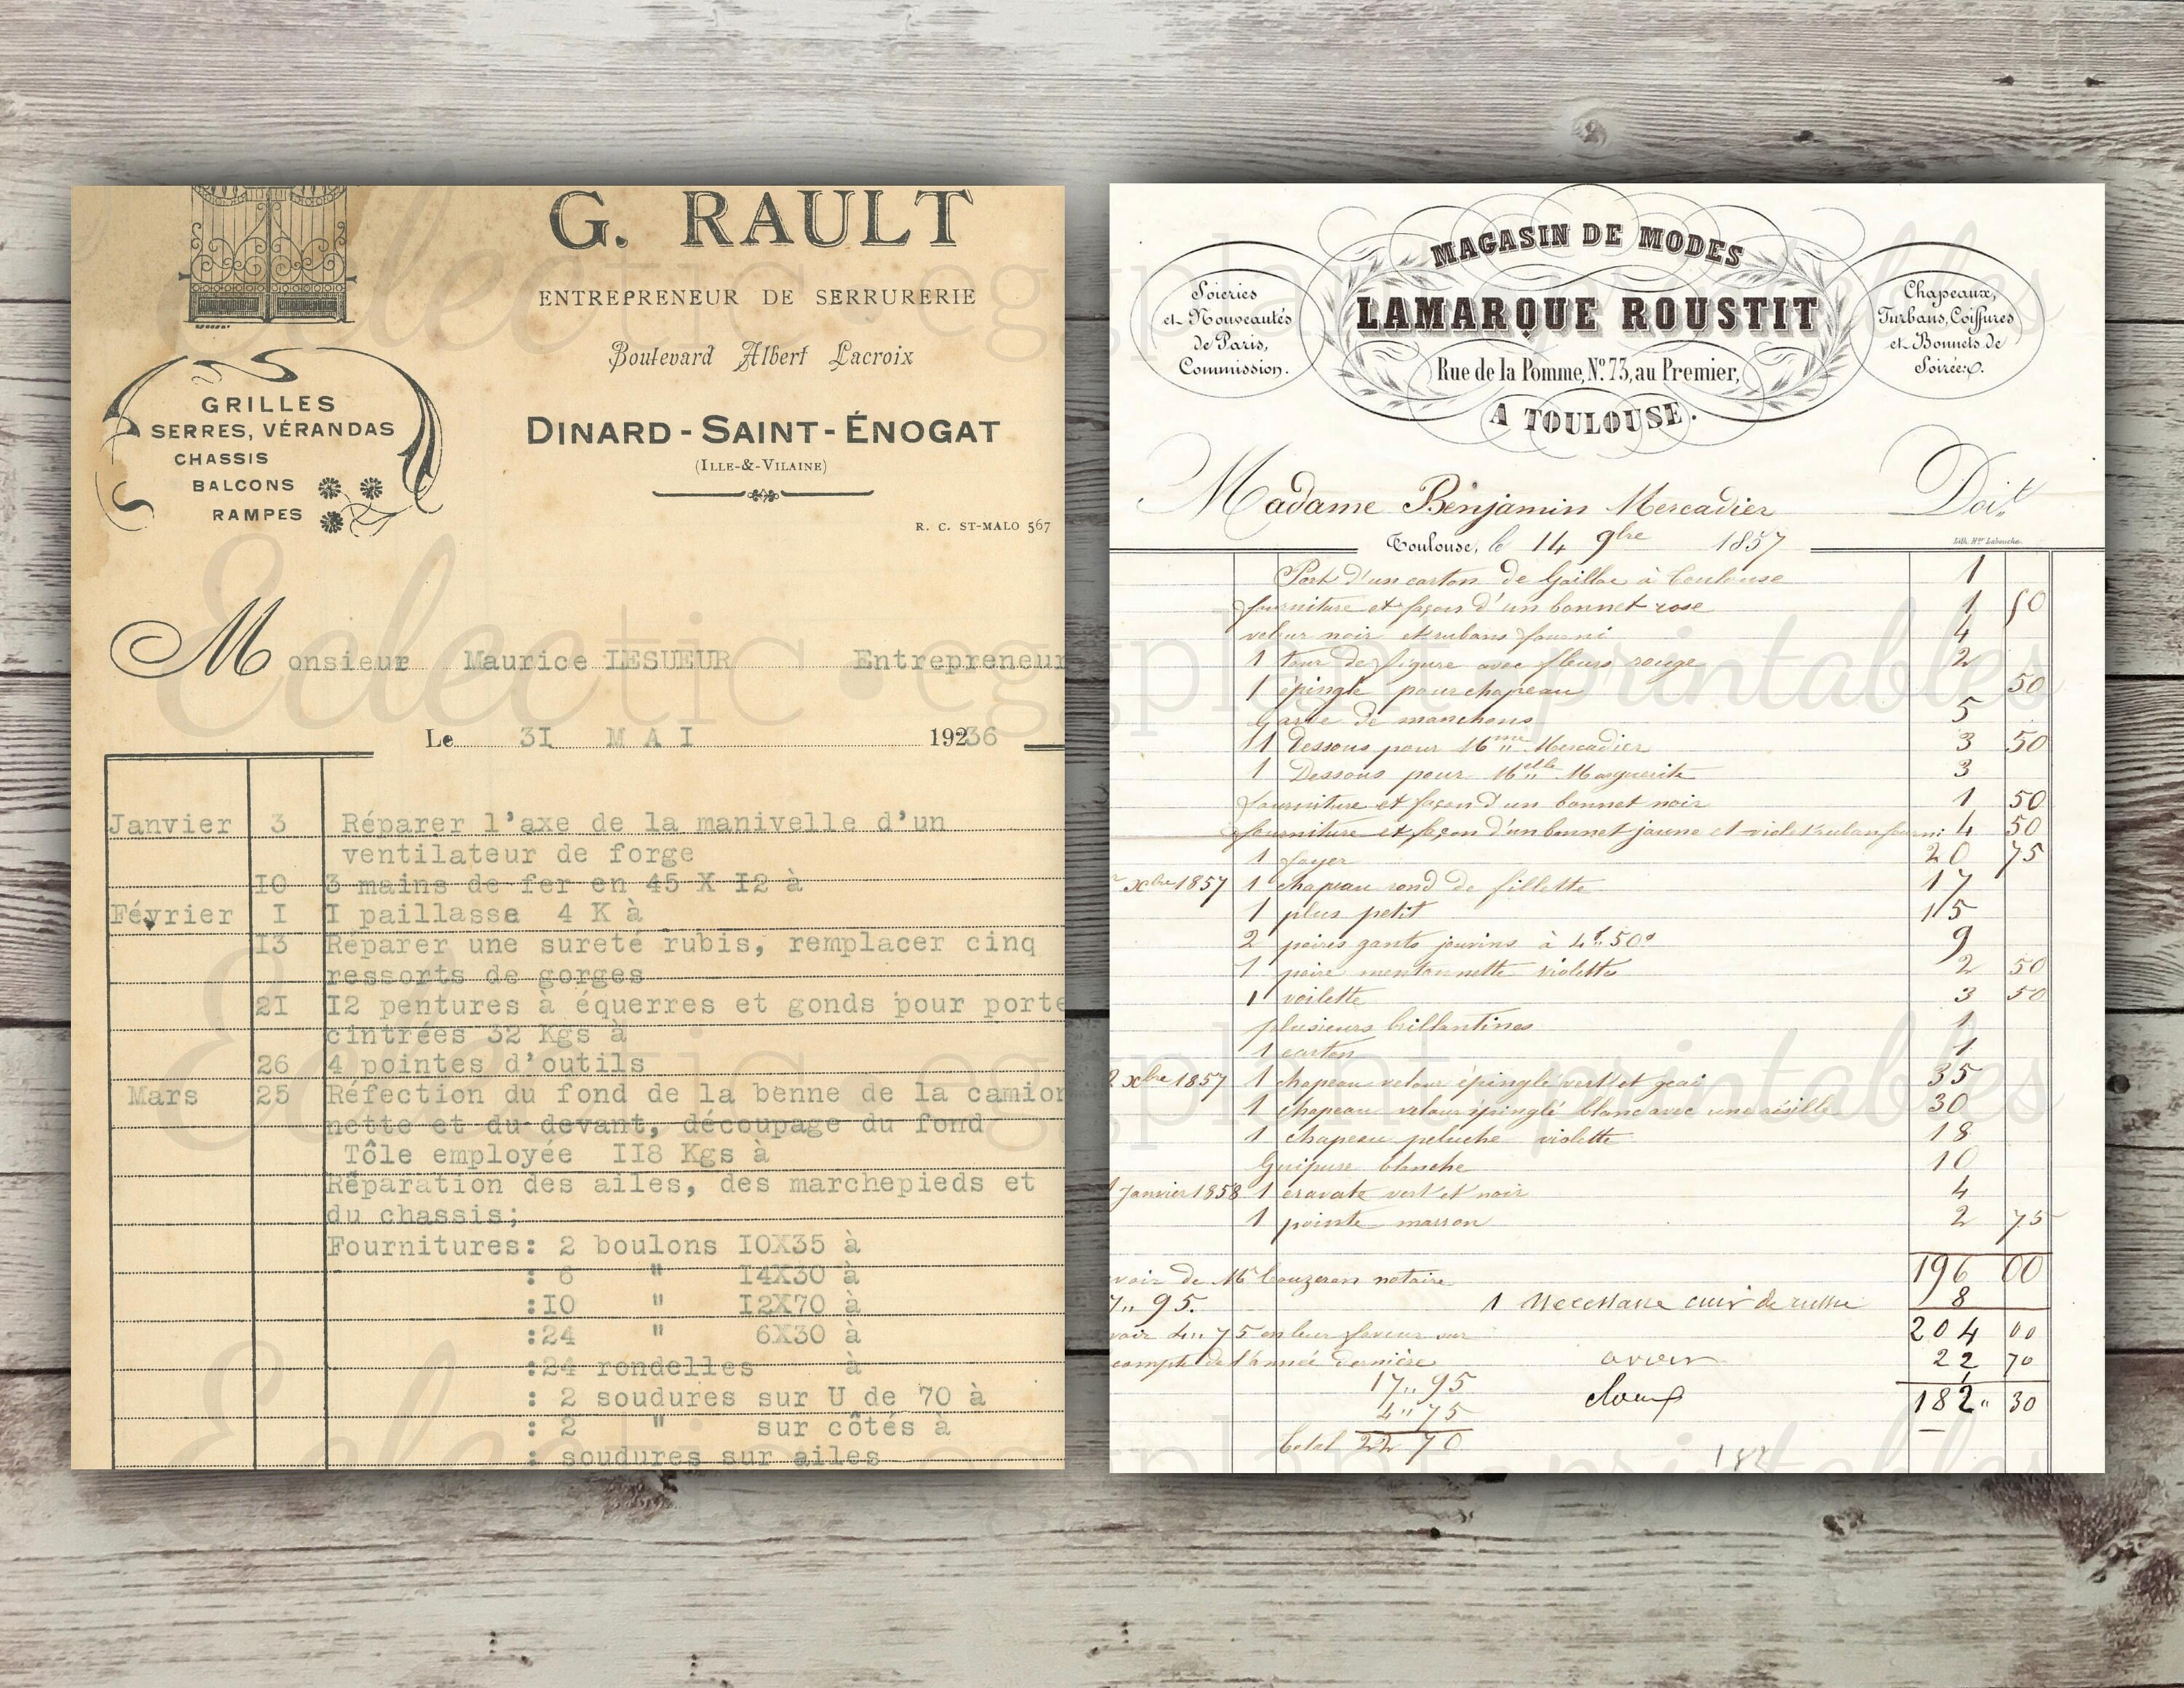 G. RAULT
ENTREPRENEUR DE SERRURERIE
Boulevard Albert Lacroix
DINARD-SAINT-ÉNOGAT
(ILLE-&-VILAINE)
R. C. ST-MALO 567
GRILLES
SERRES, VÉRANDAS
CHASSIS
BALCONS
RAMPES
Monsieur Maurice LESUEUR Entrepreneur
Le 31 MAI 19236
Janvier 3 Réparer l'axe de la manivelle d'un
ventilateur de forge
I0 3 mains de fer en 45 X I2 à
Février I I paillasse 4 K à
I3 Réparer une sureté rubis, remplacer cinq
ressorts de gorges
2I I2 pentures à équerres et gonds pour porte
cintrées 32 Kgs à
26 4 pointes d'outils
Mars 25 Réfection du fond de la benne de la camion
nette et du devant, découpage du fond
Tôle employée II8 Kgs à
Réparation des ailes, des marchepieds et
du chassis;
Fournitures: 2 boulons I0X35 à
: 6 " I4X30 à
:I0 " I2X70 à
:24 " 6X30 à
:24 rondelles à
: 2 soudures sur U de 70 à
: 2 " sur côtés à
: soudures sur ailes
MAGASIN DE MODES
LAMARQUE ROUSTIT
Rue de la Pomme, N.º 73, au Premier,
A TOULOUSE.
Soieries
et Nouveautés
de Paris,
Commission.
Chapeaux,
Turbans, Coiffures
et Bonnets de
Soirée
Madame Benjamin Mercadier Doit
Toulouse, le 14 9bre 1857
Port d'un carton de Gaillac à Toulouse 1
fourniture et façon d'un bonnet rose 1 50
velour noir et rubans fourni 4
1 tour de figure avec fleurs rouge 2
1 épingle pour chapeau 50
de manchons 5
1 Dessous pour Mme Mercadier 3 50
1 Dessous pour Melle Marguerite 3
fourniture et façon d'un bonnet noir 1 50
fourniture et façon d'un bonnet jaune et violet ruban fourni 4 50
1 20 75
xbre 1857 1 chapeau rond de fillette 17
1 plus petit 15
2 paires gants jouvins à 4f 50c 9
1 paire mentonnette violette 2 50
1 voilette 3 50
plusieurs brillantines 1
1 carton 1
2 xbre 1857 1 chapeau velour épinglé vert et geai 35
1 chapeau velour épinglé blanc avec une résille 30
1 chapeau peluche violette 18
Guipure blanche 10
1 Janvier 1858 1 cravate vert et noir 4
1 pointe marron 2 75
196 00
voir de Mr Couzeran notaire
7,, 95. 1 Necessaire cuir de russie 8
voir 4,, 75 en leur faveur sur 204 00
compte de l'année dernière avoir 22 70
17,, 95
4,, 75 182,, 30
total 22 70
182
Eclectic eggplant printables